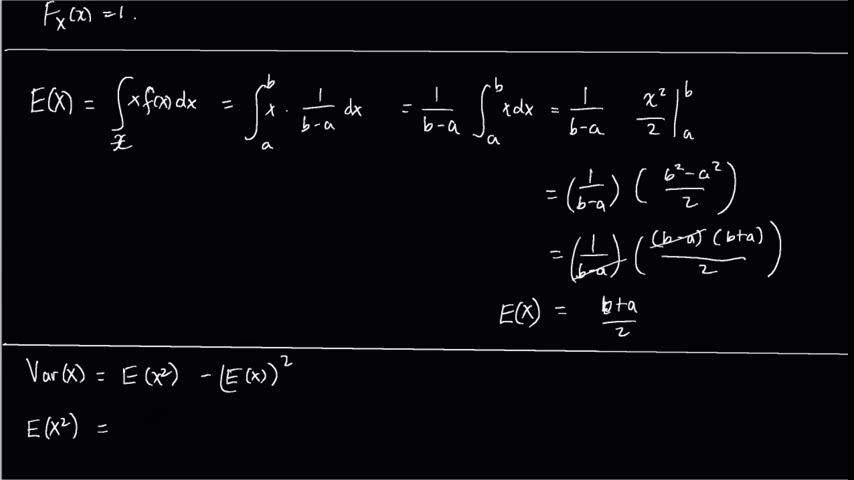 F_X(x) = 1.
E(X) = ∫_𝒳 x f(x) dx = ∫_a^b x · 1/(b-a) dx = 1/(b-a) ∫_a^b x dx = 1/(b-a) x²/2 |_a^b
= (1/(b-a)) ((b² - a²)/2)
= (1/(b-a)) ((b-a)(b+a)/2)
E(X) = (b+a)/2
Var(X) = E(X²) - (E(X))²
E(X²) =